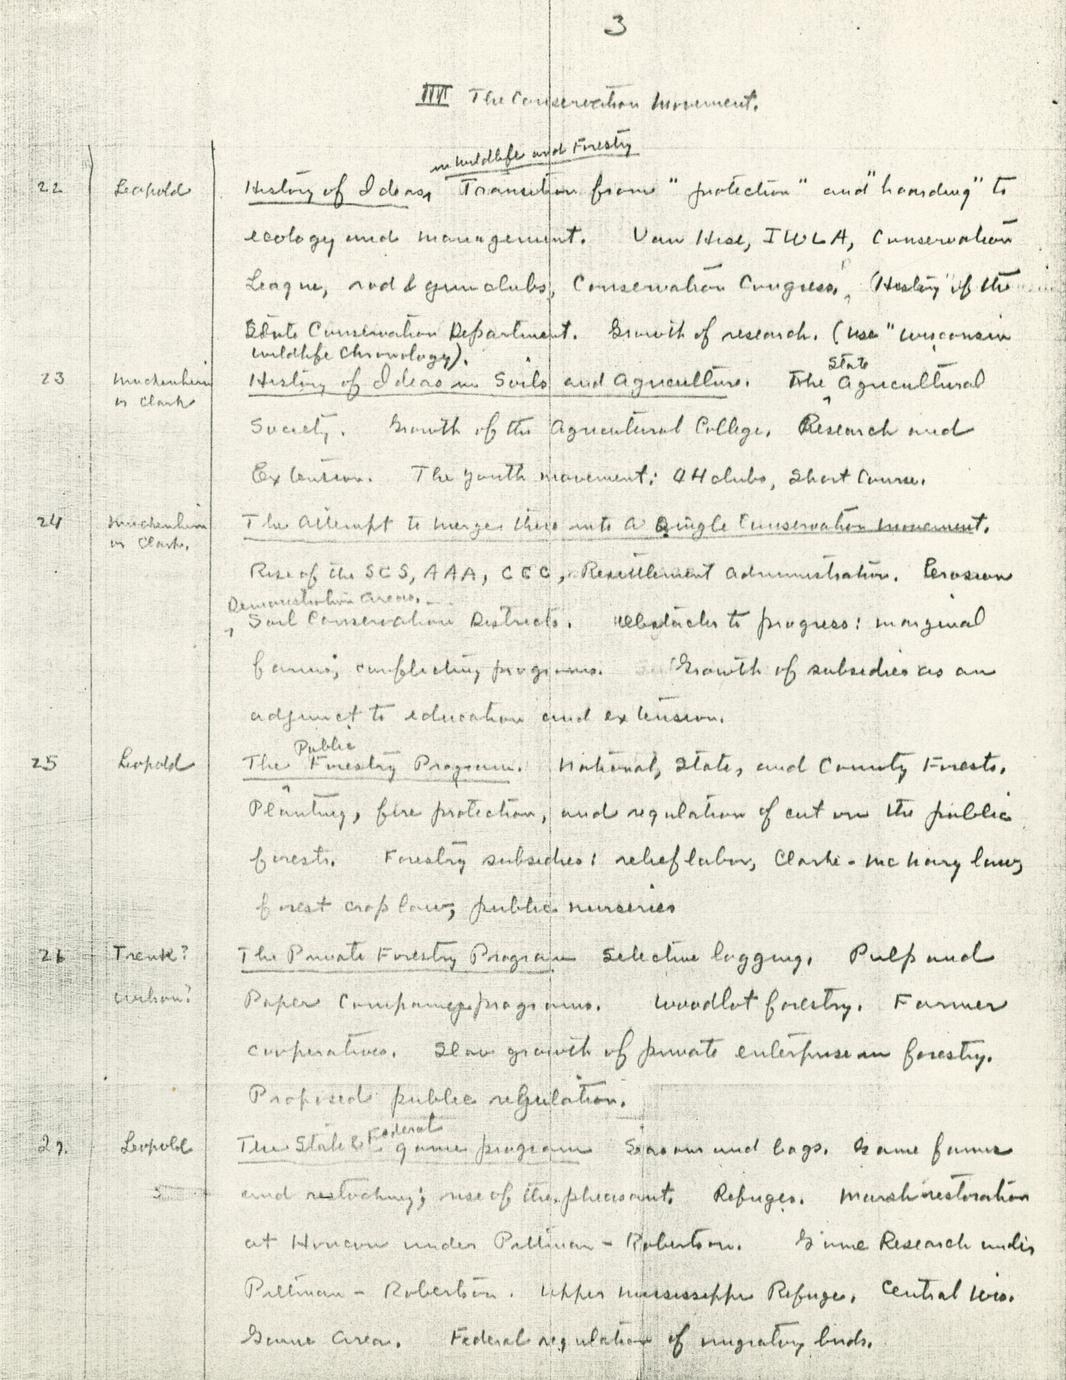 3
III The Conservation Movement.
in Wildlife and Forestry
22 Leopold History of Ideas, Transition from "protection" and "hoarding" to
ecology and management. Van Hise, IWLA, Conservation
League, rod & gun clubs, Conservation Congress, (History of the
State Conservation Department. Growth of research. (Use "Wisconsin
Wildlife Chronology).
State
23 Muckenhirn History of Ideas in Soils and Agriculture. The Agricultural
or Clark
Society. Growth of the Agricultural College. Research and
Extension. The youth movement: 4H clubs, Short Course.
24 Muckenhirn The Attempt to merge these into a Single Conservation movement.
or Clark.
Rise of the SCS, AAA, CCC, Resettlement Administration. Erosion
Demonstration Areas.
Soil Conservation Districts. Obstacles to progress: marginal
farms, conflicting programs. Growth of subsidies as an
adjunct to education and extension.
Public
25 Leopold The Forestry Program. National, State, and County Forests.
Planting, fire protection, and regulation of cut on the public
forests. Forestry subsidies: relief labor, Clarke-McNary law,
forest crop law, public nurseries
26 Trenk? The Private Forestry Program Selective logging. Pulp and
Wilson? Paper Company programs. Woodlot forestry. Farmer
cooperatives. Slow growth of private enterprise in forestry.
Proposed public regulation.
Federal
27. Leopold The State & game program Seasons and bags. Game farms
and restocking; rise of the pheasant. Refuges. Marsh restoration
at Horicon under Pittman-Robertson. Game Research under
Pittman-Robertson. Upper Mississippi Refuge. Central Wis.
Game Area. Federal regulation of migratory birds.